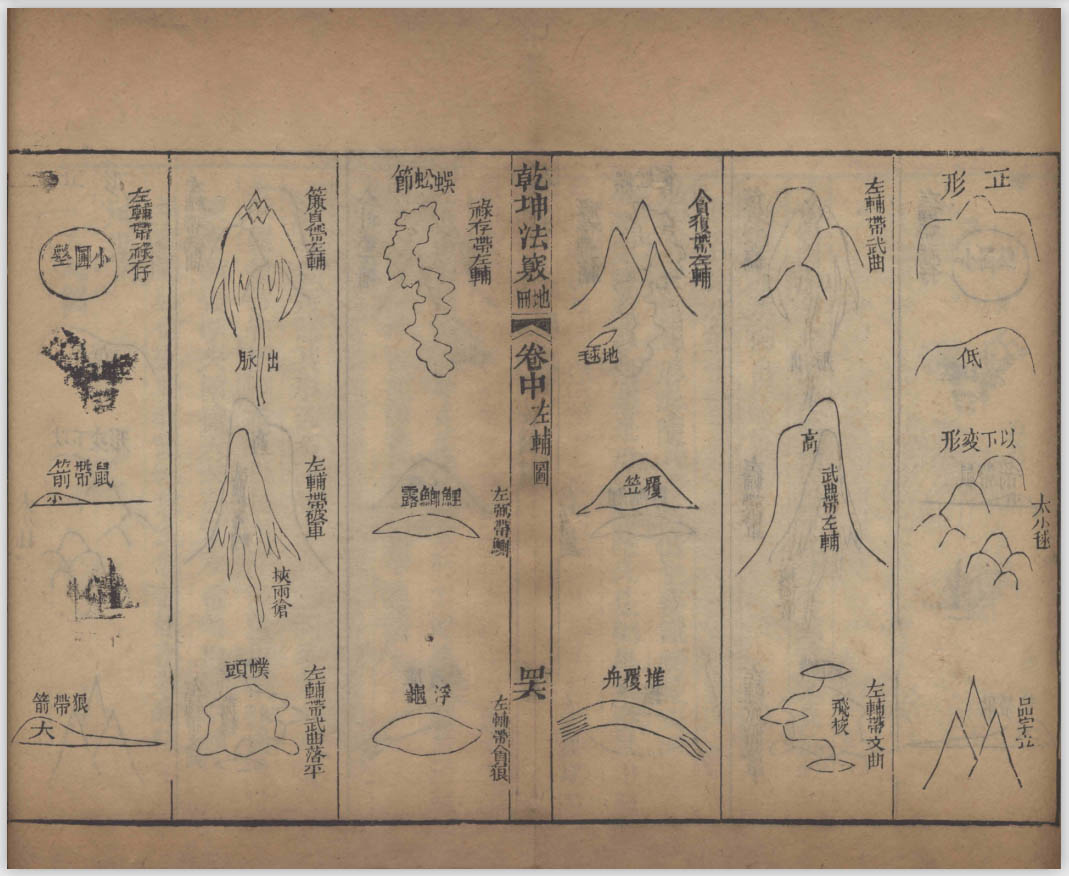 正形
低
以下変形
太小毬
品字立
左輔帶武曲
高
武曲帶左輔
左輔帶文曲
飛梭
貪狼帶左輔
地毬
覆笠
推覆舟
乾坤法竅
地冊
卷中
左輔圖
四六
祿存帶左輔
蜈蚣節
鯉鯽露
浮龜
左輔帶貪狼
廉貞帶左輔
出脉
左輔帶破軍
頭幞
左輔帶武曲落平
左輔帶祿存
小圓墪
鼠帶箭
小
狼帶箭
大